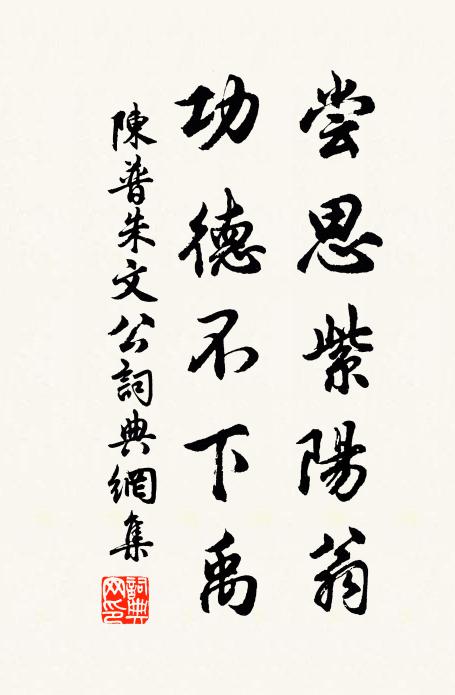 尝思紫陽翁
功德不下禹
陳普朱文公詞典網集
詞典网印